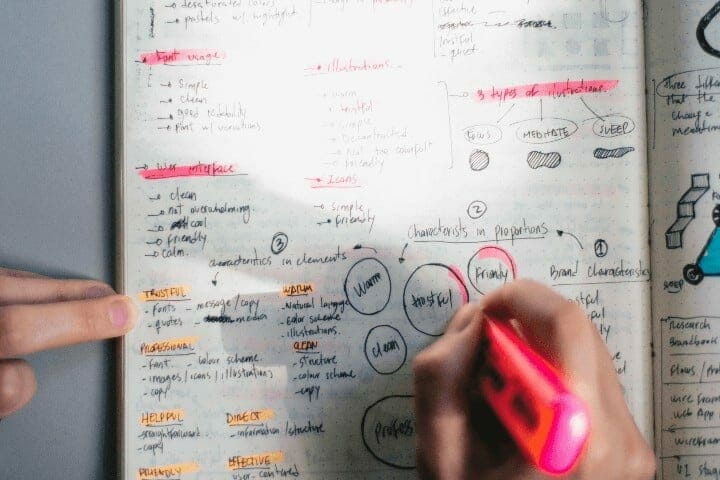 - desaturated colors
- pastels w/ highlight
→ Font usages
- simple
- clean
- good readability
- font w/ variations
→ User interface
→ clean
→ not overwhelming.
→ cool
→ friendly
→ calm.
→ illustrations.
→ warm
→ trustful
→ simple
→ Not too colorful
→ friendly
→ Icons
→ simple
→ friendly
effective
trustful
quiet
→ 3 types of ilustrations.
FOCUS
MEDITATE
SLEEP
②
Characterists in proportions
①
Brand characteristics
③
characteritics in elements
Warm
trustful
Friendly
clean
Profess
TRUSTFUL
- Fonts - message/copy
- quotes - media
PROFESSIONAL
- Font - colour scheme.
- images/icons/illustrations
- copy
HELPFUL
- straightforward
- copy
FRIENDLY
WARM
- Natural language
- color scheme
- illustrations.
CLEAN
- structure
- colour scheme
- copy
DIRECT
- information/structure
EFFECTIVE
user-centered
Three
that the
change
SLEEP
Research
Flows
wirefram
Web App
wirefram
UI